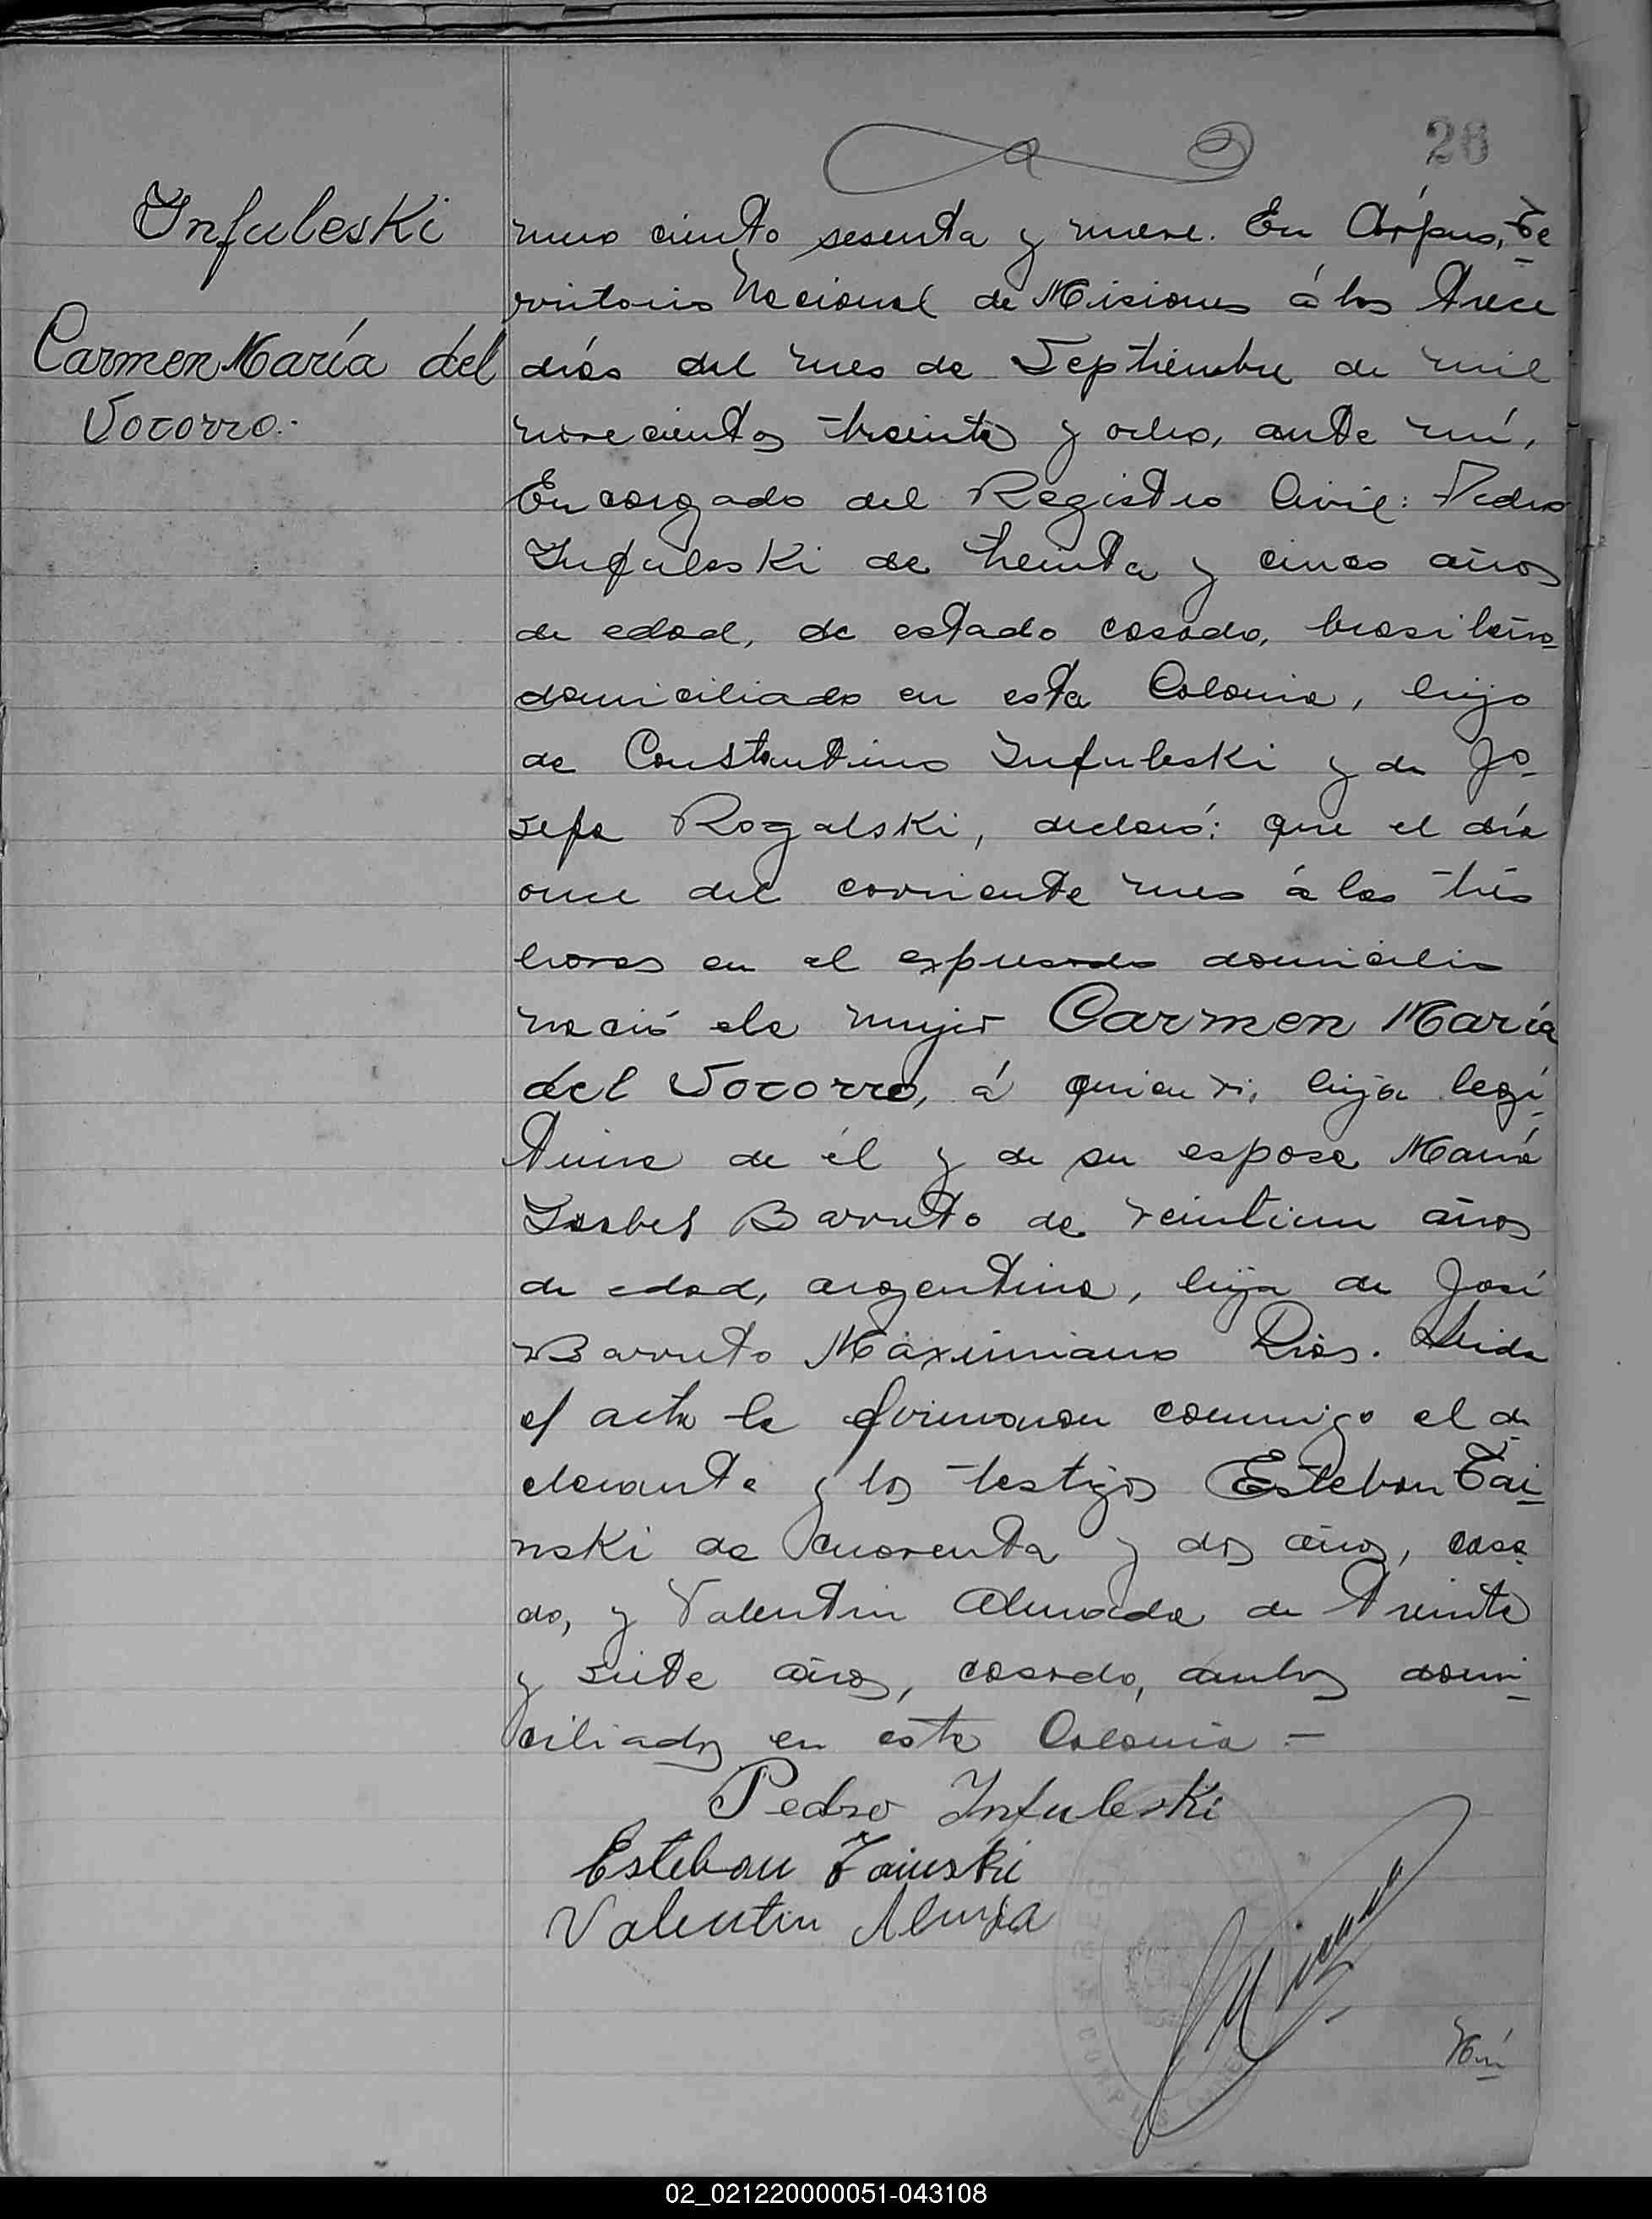 26
Infuleski
Carmen María del
Socorro.-
mero ciento sesenta y nueve. En Córpus, Te
rritorio Nacional de Misiones á los trece
días del mes de Septiembre de mil
novecientos treinta y ocho, ante mí,
Encargado del Registro Civil: Pedro
Infuleski de treinta y cinco años
de edad, de estado casado, brasileño
domiciliado en esta Colonia, hijo
de Constantino Infuleski y de Jo-
sefa Rogalski, declaró: que el día
once del corriente mes á las trés
horas en el expresado domicilio
nació la mujer Carmen María
del Socorro, á quien ví, hija legí-
tima de él y de su esposa María
Isabel Barreto de veintiun años
de edad, argentina, hija de José
Barreto Máximiano Rios. Leida
el acta la firmaron conmigo el de
clarante y los testigos Esteban Zai-
nski de cuarenta y dos años, casa
do, y Valentin Almada de treinta
y siete años, casado, ambos domi-
ciliados en esta Colonia -
Pedro Infuleski
Esteban Zainski
Valentin Almada
Nú
02_021220000051-043108